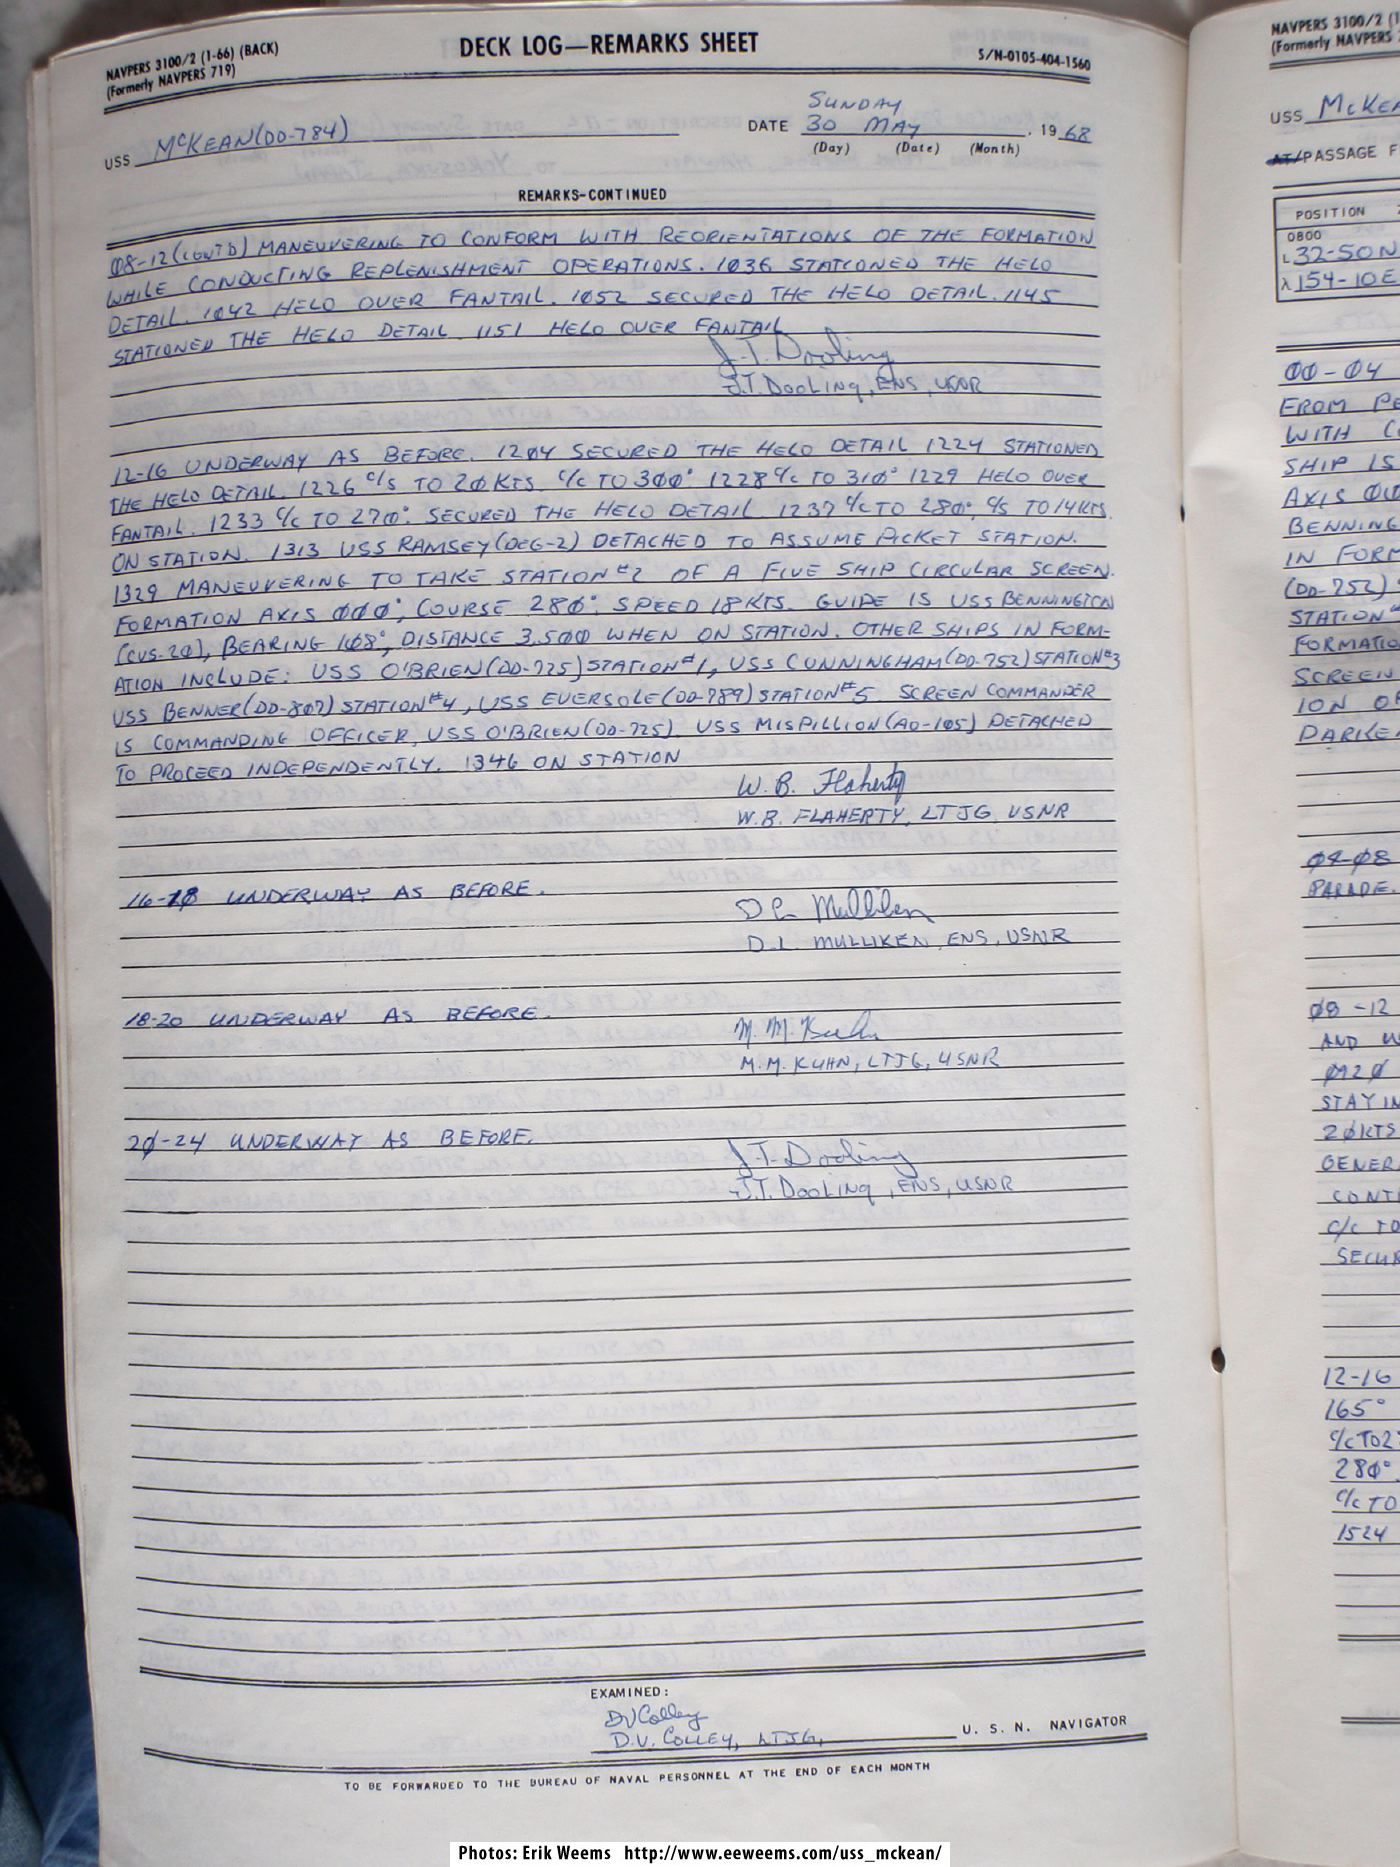 NAVPERS 3100/2 (1-66) (BACK)
(Formerly NAVPERS 719)
DECK LOG—REMARKS SHEET
S/N-0105-404-1560
USS McKEAN (DD-784)
DATE SUNDAY 30 MAY, 1968
(Day) (Date) (Month)
REMARKS-CONTINUED
08-12 (CONT'D) MANEUVERING TO CONFORM WITH REORIENTATIONS OF THE FORMATION
WHILE CONDUCTING REPLENISHMENT OPERATIONS. 1036 STATIONED THE HELO
DETAIL. 1042 HELO OVER FANTAIL. 1052 SECURED THE HELO DETAIL. 1145
STATIONED THE HELO DETAIL. 1151 HELO OVER FANTAIL
J.T. Dooling
J.T. DOOLING, ENS, USNR
12-16 UNDERWAY AS BEFORE. 1204 SECURED THE HELO DETAIL 1224 STATIONED
THE HELO DETAIL. 1226 C/S TO 20 KTS C/C TO 300° 1228 C/C TO 310° 1229 HELO OVER
FANTAIL. 1233 C/C TO 270°. SECURED THE HELO DETAIL 1237 C/C TO 280°, C/S TO 14 KTS.
ON STATION. 1313 USS RAMSEY (DEG-2) DETACHED TO ASSUME PICKET STATION.
1329 MANEUVERING TO TAKE STATION #2 OF A FIVE SHIP CIRCULAR SCREEN.
FORMATION AXIS 000°, COURSE 280°, SPEED 18 KTS. GUIDE IS USS BENNINGTON
(CVS-20), BEARING 108°, DISTANCE 3,500 WHEN ON STATION. OTHER SHIPS IN FORM-
ATION INCLUDE: USS O'BRIEN (DD-725) STATION #1, USS CUNNINGHAM (DD-752) STATION #3
USS BENNER (DD-807) STATION #4, USS EVERSOLE (DD-789) STATION #5 SCREEN COMMANDER
IS COMMANDING OFFICER, USS O'BRIEN (DD-725). USS MISPILLION (AO-105) DETACHED
TO PROCEED INDEPENDENTLY. 1346 ON STATION
W. B. Flaherty
W.B. FLAHERTY, LTJG, USNR
16-18 UNDERWAY AS BEFORE.
D L Mulliken
D.L. MULLIKEN, ENS, USNR
18-20 UNDERWAY AS BEFORE.
M. M. Kuhn
M.M. KUHN, LTJG, USNR
20-24 UNDERWAY AS BEFORE.
J.T. Dooling
J.T. DOOLING, ENS, USNR
EXAMINED:
DV Colley
D.V. COLLEY, LTJG, U. S. N. NAVIGATOR
TO BE FORWARDED TO THE BUREAU OF NAVAL PERSONNEL AT THE END OF EACH MONTH
NAVPERS 3100/2 (1
(Formerly NAVPERS
USS McKEA
AT/PASSAGE F
POSITION
0800
L 32-50N
λ 154-10E
00-04
FROM PE
WITH C
SHIP IS
AXIS 00
BENNING
IN FORM
(DD-752)
STATION
FORMATIO
SCREEN
ION O
DARKE
04-08
PARADE.
08-12
AND U
0920
STAY IN
20 KTS
GENER
CONTI
C/C TO
SECUR
12-16
165°
C/C TO 2
280°
C/C TO
1524
Photos: Erik Weems http://www.eeweems.com/uss_mckean/